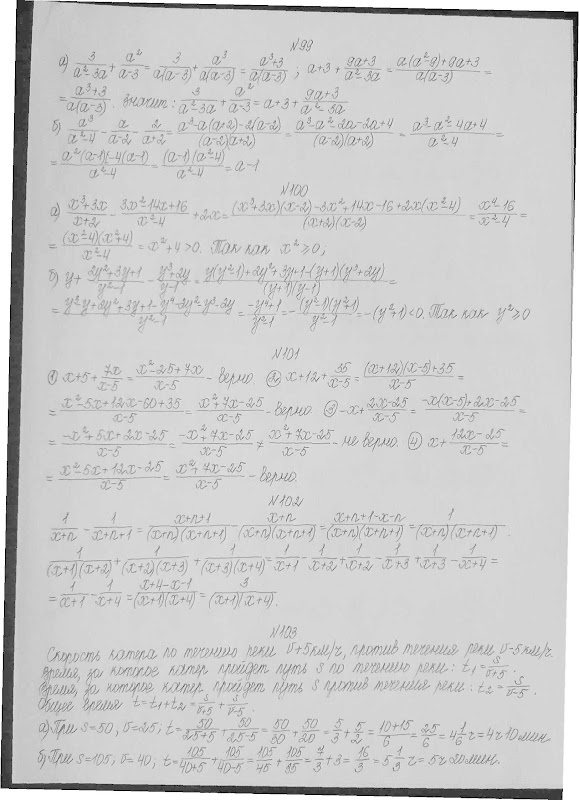 N99
а) 3/(a²-3a) + a²/(a-3) = 3/(a(a-3)) + a³/(a(a-3)) = (a³+3)/(a(a-3)) ; a+3 + (9a+3)/(a²-3a) = (a(a²-9)+9a+3)/(a(a-3)) =
= (a³+3)/(a(a-3)). значит: 3/(a²-3a) + a²/(a-3) = a+3 + (9a+3)/(a²-3a)
б) a³/(a²-4) - a/(a-2) - 2/(a+2) = (a³-a(a+2)-2(a-2))/((a-2)(a+2)) = (a³-a²-2a-2a+4)/((a-2)(a+2)) = (a³-a²-4a+4)/(a²-4) =
= (a²(a-1)-4(a-1))/(a²-4) = ((a-1)(a²-4))/(a²-4) = a-1
N100
а) (x³+3x)/(x+2) - (3x²-14x+16)/(x²-4) + 2x = ((x³+3x)(x-2)-3x²+14x-16+2x(x²-4))/((x+2)(x-2)) = (x⁴-16)/(x²-4) =
= ((x²-4)(x²+4))/(x²-4) = x²+4>0. Так как x²≥0;
б) y + (2y²+3y+1)/(y²-1) - (y³+2y)/(y-1) = (y(y²-1)+2y²+3y+1-(y+1)(y³+2y))/((y+1)(y-1)) =
= (y³-y+2y²+3y+1-y⁴-2y²-y³-2y)/(y²-1) = (-y⁴+1)/(y²-1) = -((y²-1)(y²+1))/(y²-1) = -(y²+1)<0. Так как y²≥0
N101
① x+5+7x/(x-5) = (x²-25+7x)/(x-5) - верно. ② x+12+35/(x-5) = ((x+12)(x-5)+35)/(x-5) =
= (x²-5x+12x-60+35)/(x-5) = (x²+7x-25)/(x-5) - верно ③ -x+(2x-25)/(x-5) = (-x(x-5)+2x-25)/(x-5) =
= (-x²+5x+2x-25)/(x-5) = (-x²+7x-25)/(x-5) ≠ (x²+7x-25)/(x-5) - не верно. ④ x+(12x-25)/(x-5) =
= (x²-5x+12x-25)/(x-5) = (x²+7x-25)/(x-5) - верно.
N102
1/(x+n) - 1/(x+n+1) = (x+n+1)/((x+n)(x+n+1)) - (x+n)/((x+n)(x+n+1)) = (x+n+1-x-n)/((x+n)(x+n+1)) = 1/((x+n)(x+n+1)).
1/((x+1)(x+2)) + 1/((x+2)(x+3)) + 1/((x+3)(x+4)) = 1/(x+1) - 1/(x+2) + 1/(x+2) - 1/(x+3) + 1/(x+3) - 1/(x+4) =
= 1/(x+1) - 1/(x+4) = (x+4-x-1)/((x+1)(x+4)) = 3/((x+1)(x+4)).
N103
Скорость катера по течению реки v+5км/ч, против течения реки v-5км/ч.
Время, за которое катер пройдет путь s по течению реки: t₁ = s/(v+5).
Время, за которое катер пройдет путь s против течения реки: t₂ = s/(v-5).
Общее время t=t₁+t₂ = s/(v+5) + s/(v-5).
а) При s=50, v=25; t = 50/(25+5) + 50/(25-5) = 50/30 + 50/20 = 5/3 + 5/2 = (10+15)/6 = 25/6 = 4 1/6 ч = 4ч 10мин
б) При s=105, v=40; t = 105/(40+5) + 105/(40-5) = 105/45 + 105/35 = 7/3 + 3 = 16/3 = 5 1/3 ч = 5ч 20мин.